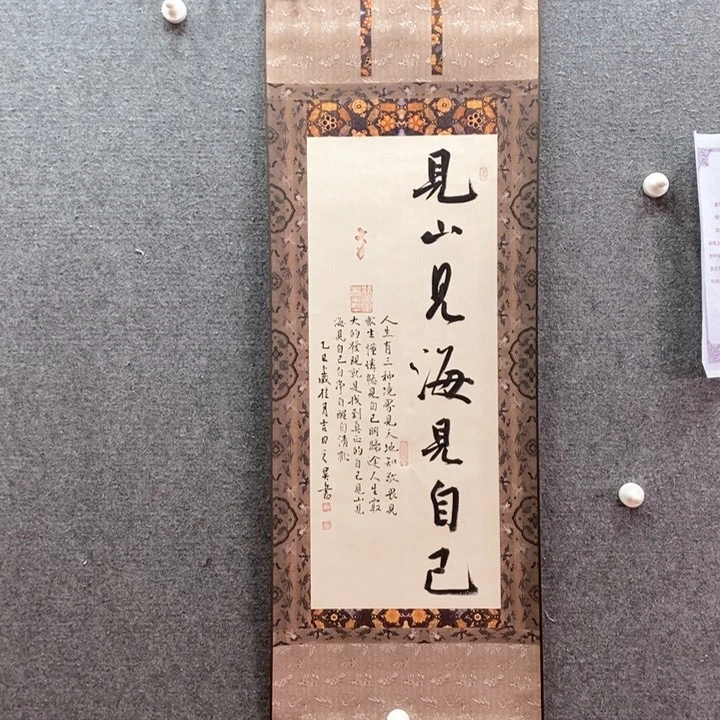 見山見海見自己
人生有三種境界見天地知敬畏見
眾生懂憐憫見自己明歸途人生最
大的發現就是找到真正的自己見山見
海見自己自渡自醒自清歡
乙巳歲桂月吉日之昊書